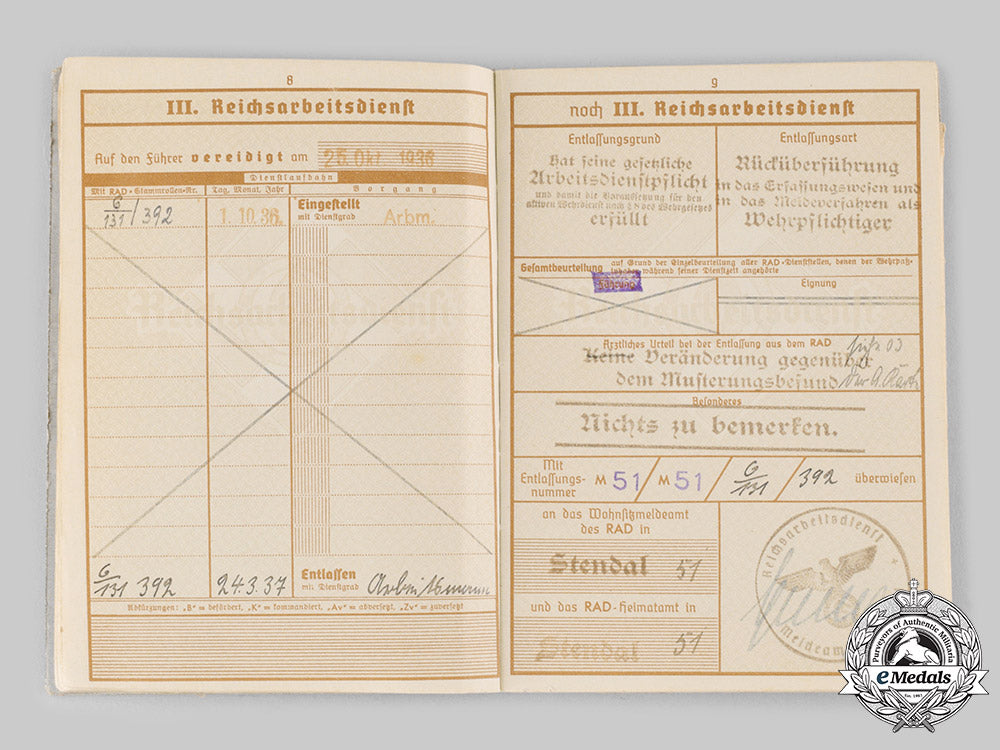 8
III. Reichsarbeitsdienst
Auf den Führer vereidigt am 25. Okt. 1936
Dienstlaufbahn
Mit RAD-Stammrollen-Nr. Tag, Monat, Jahr Vorgang
G/131/392 1. 10. 36. Eingestellt mit Dienstgrad Arbm.
G/131 392 24.3.37 Entlassen mit Dienstgrad Arbeitsmann
Abkürzungen: „B“ = befördert, „K“ = kommandiert, „Av“ = abversetzt, „Zv“ = zuversetzt
9
noch III. Reichsarbeitsdienst
Entlassungsgrund
Hat seine gesetzliche
Arbeitsdienstpflicht
und damit die Voraussetzung für den
aktiven Wehrdienst nach § 8 des Wehrgesetzes
erfüllt
Entlassungsart
Rücküberführung
in das Erfassungswesen und
in das Meldeverfahren als
Wehrpflichtiger
Gesamtbeurteilung auf Grund der Einzelbeurteilung aller RAD-Dienststellen, denen der Wehrpaß-
inhaber während seiner Dienstzeit angehörte
Führung
Eignung
Reichsarbeitsdienst
Ärztliches Urteil bei der Entlassung aus dem RAD
Keine Veränderung gegenüber
dem Musterungsbefund
Besonderes
Nichts zu bemerken.
Mit
Entlassungs-
nummer
M 51 / M 51 / G/131 / 392 überwiesen
an das Wohnsitzmeldeamt
des RAD in
Stendal 51
und das RAD-Heimatamt in
Stendal 51
Reichsarbeitsdienst
Meldeam
Purveyors of Authentic Militaria
eMedals
Est. 1967